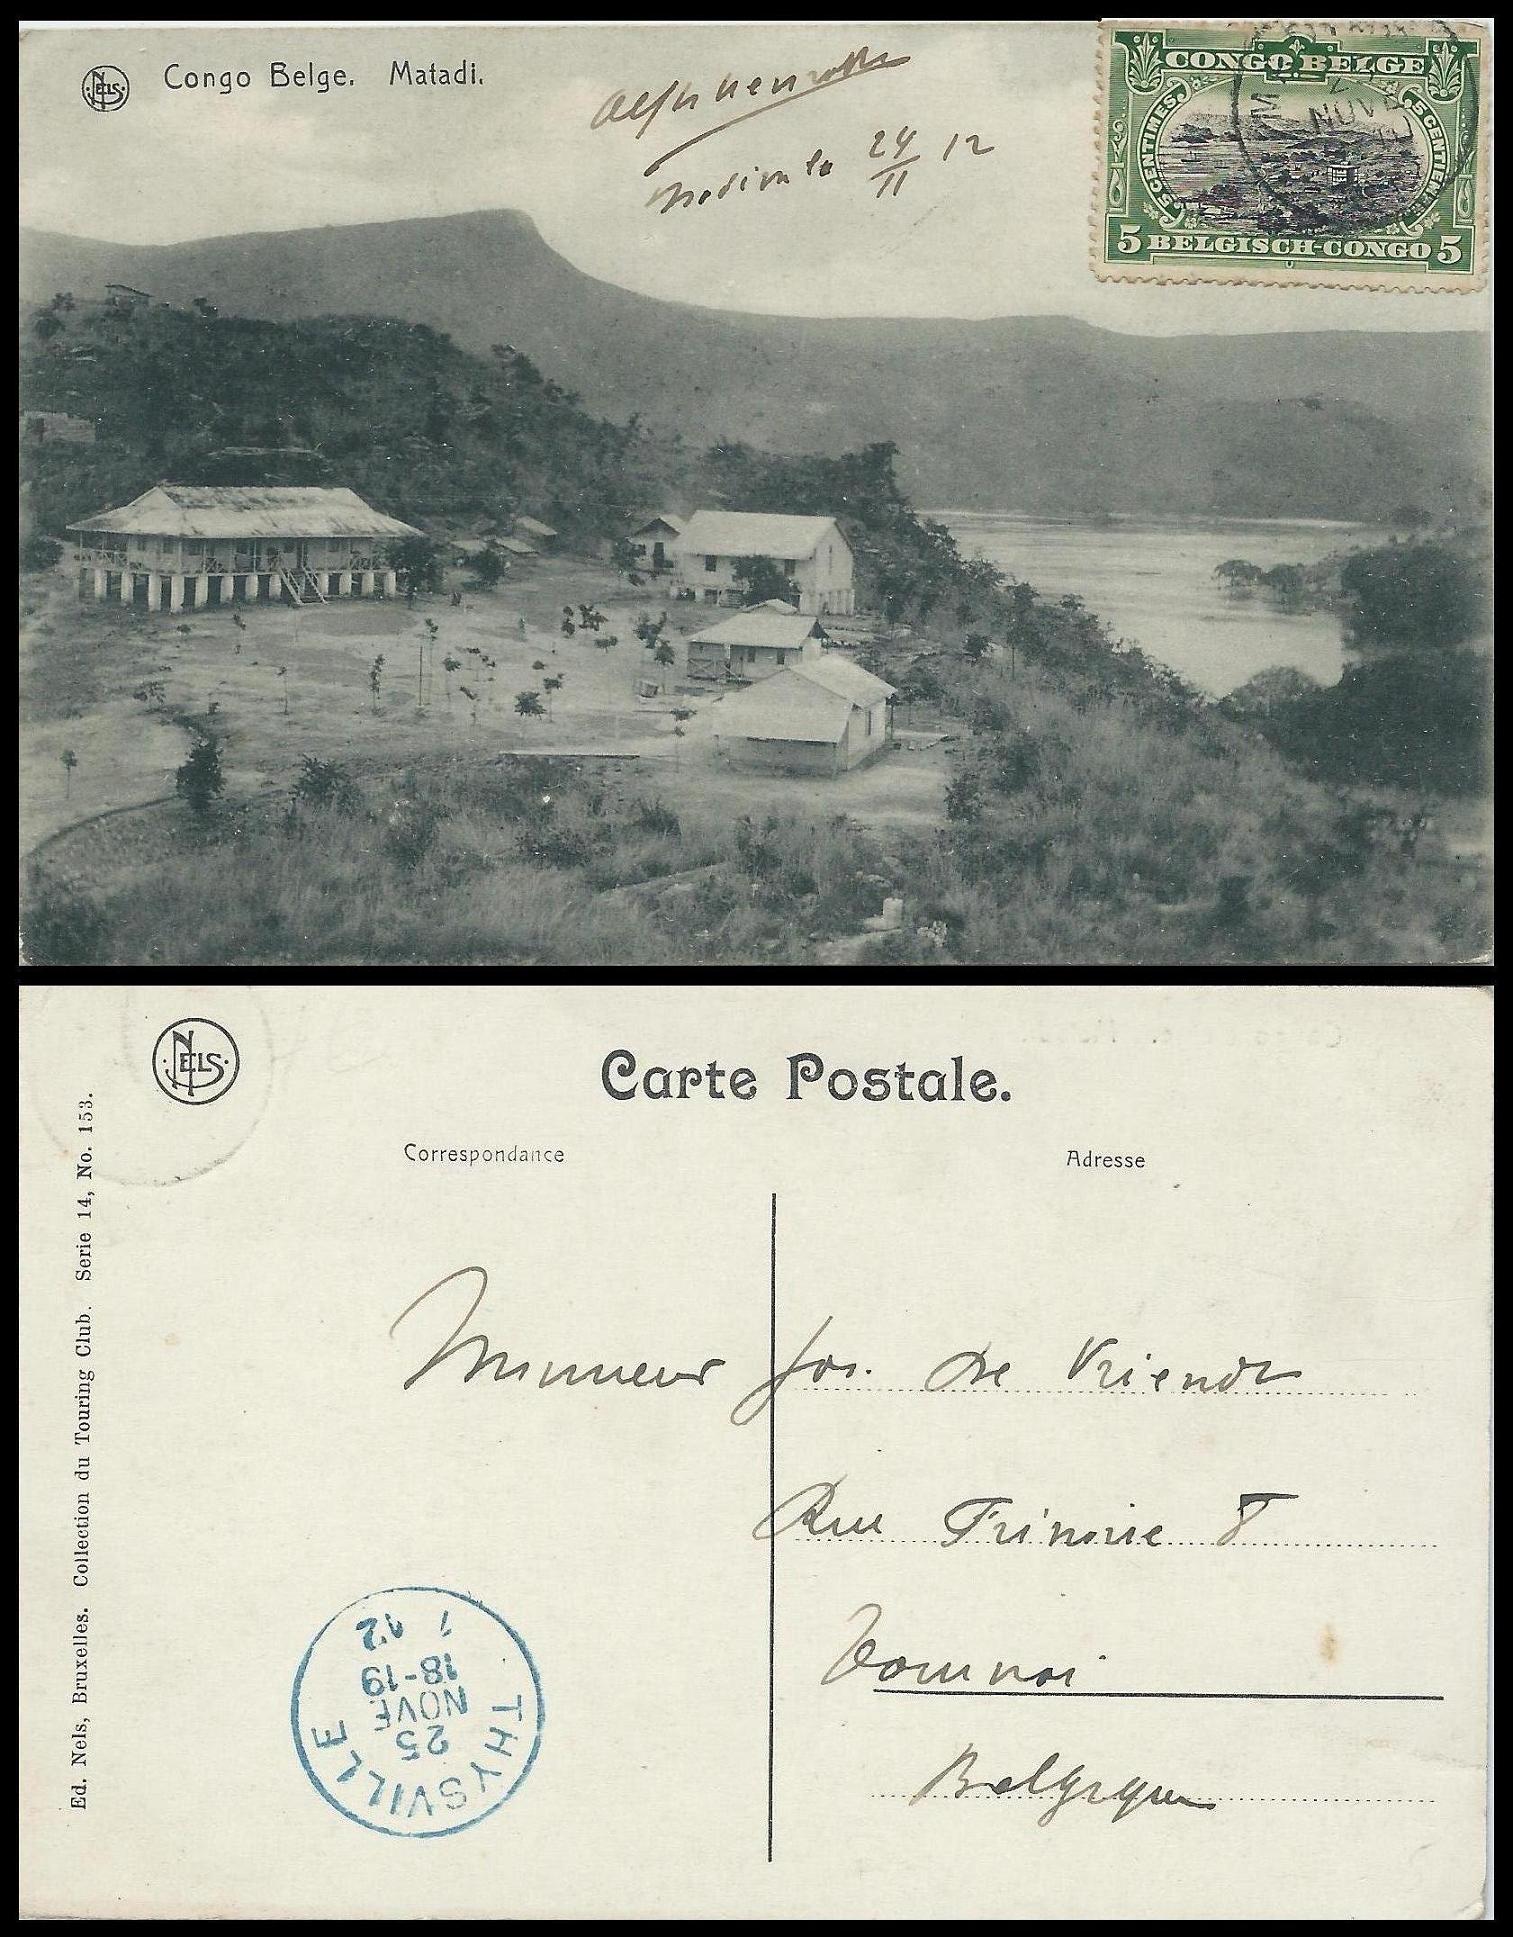 NELS
Congo Belge. Matadi.
24/11 12
CONGO BELGE
5 CENTIMES
5 CENTIEMEN
5 BELGISCH-CONGO 5
NOVE
NELS
Carte Postale.
Correspondance
Adresse
Ed. Nels, Bruxelles. Collection du Touring Club. Serie 14, No. 153.
Monsieur Jos. De Vriendt
Rue 8
Tournai
Belgique
THYSVILLE
25
NOVE
18-19
12